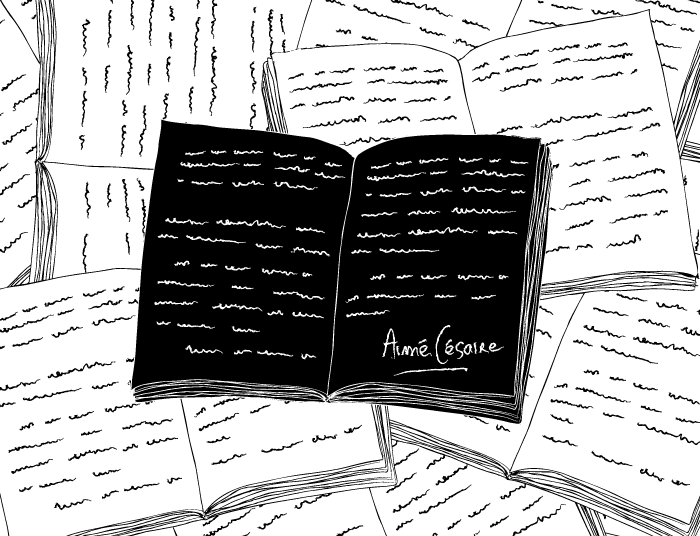 Aimé Césaire